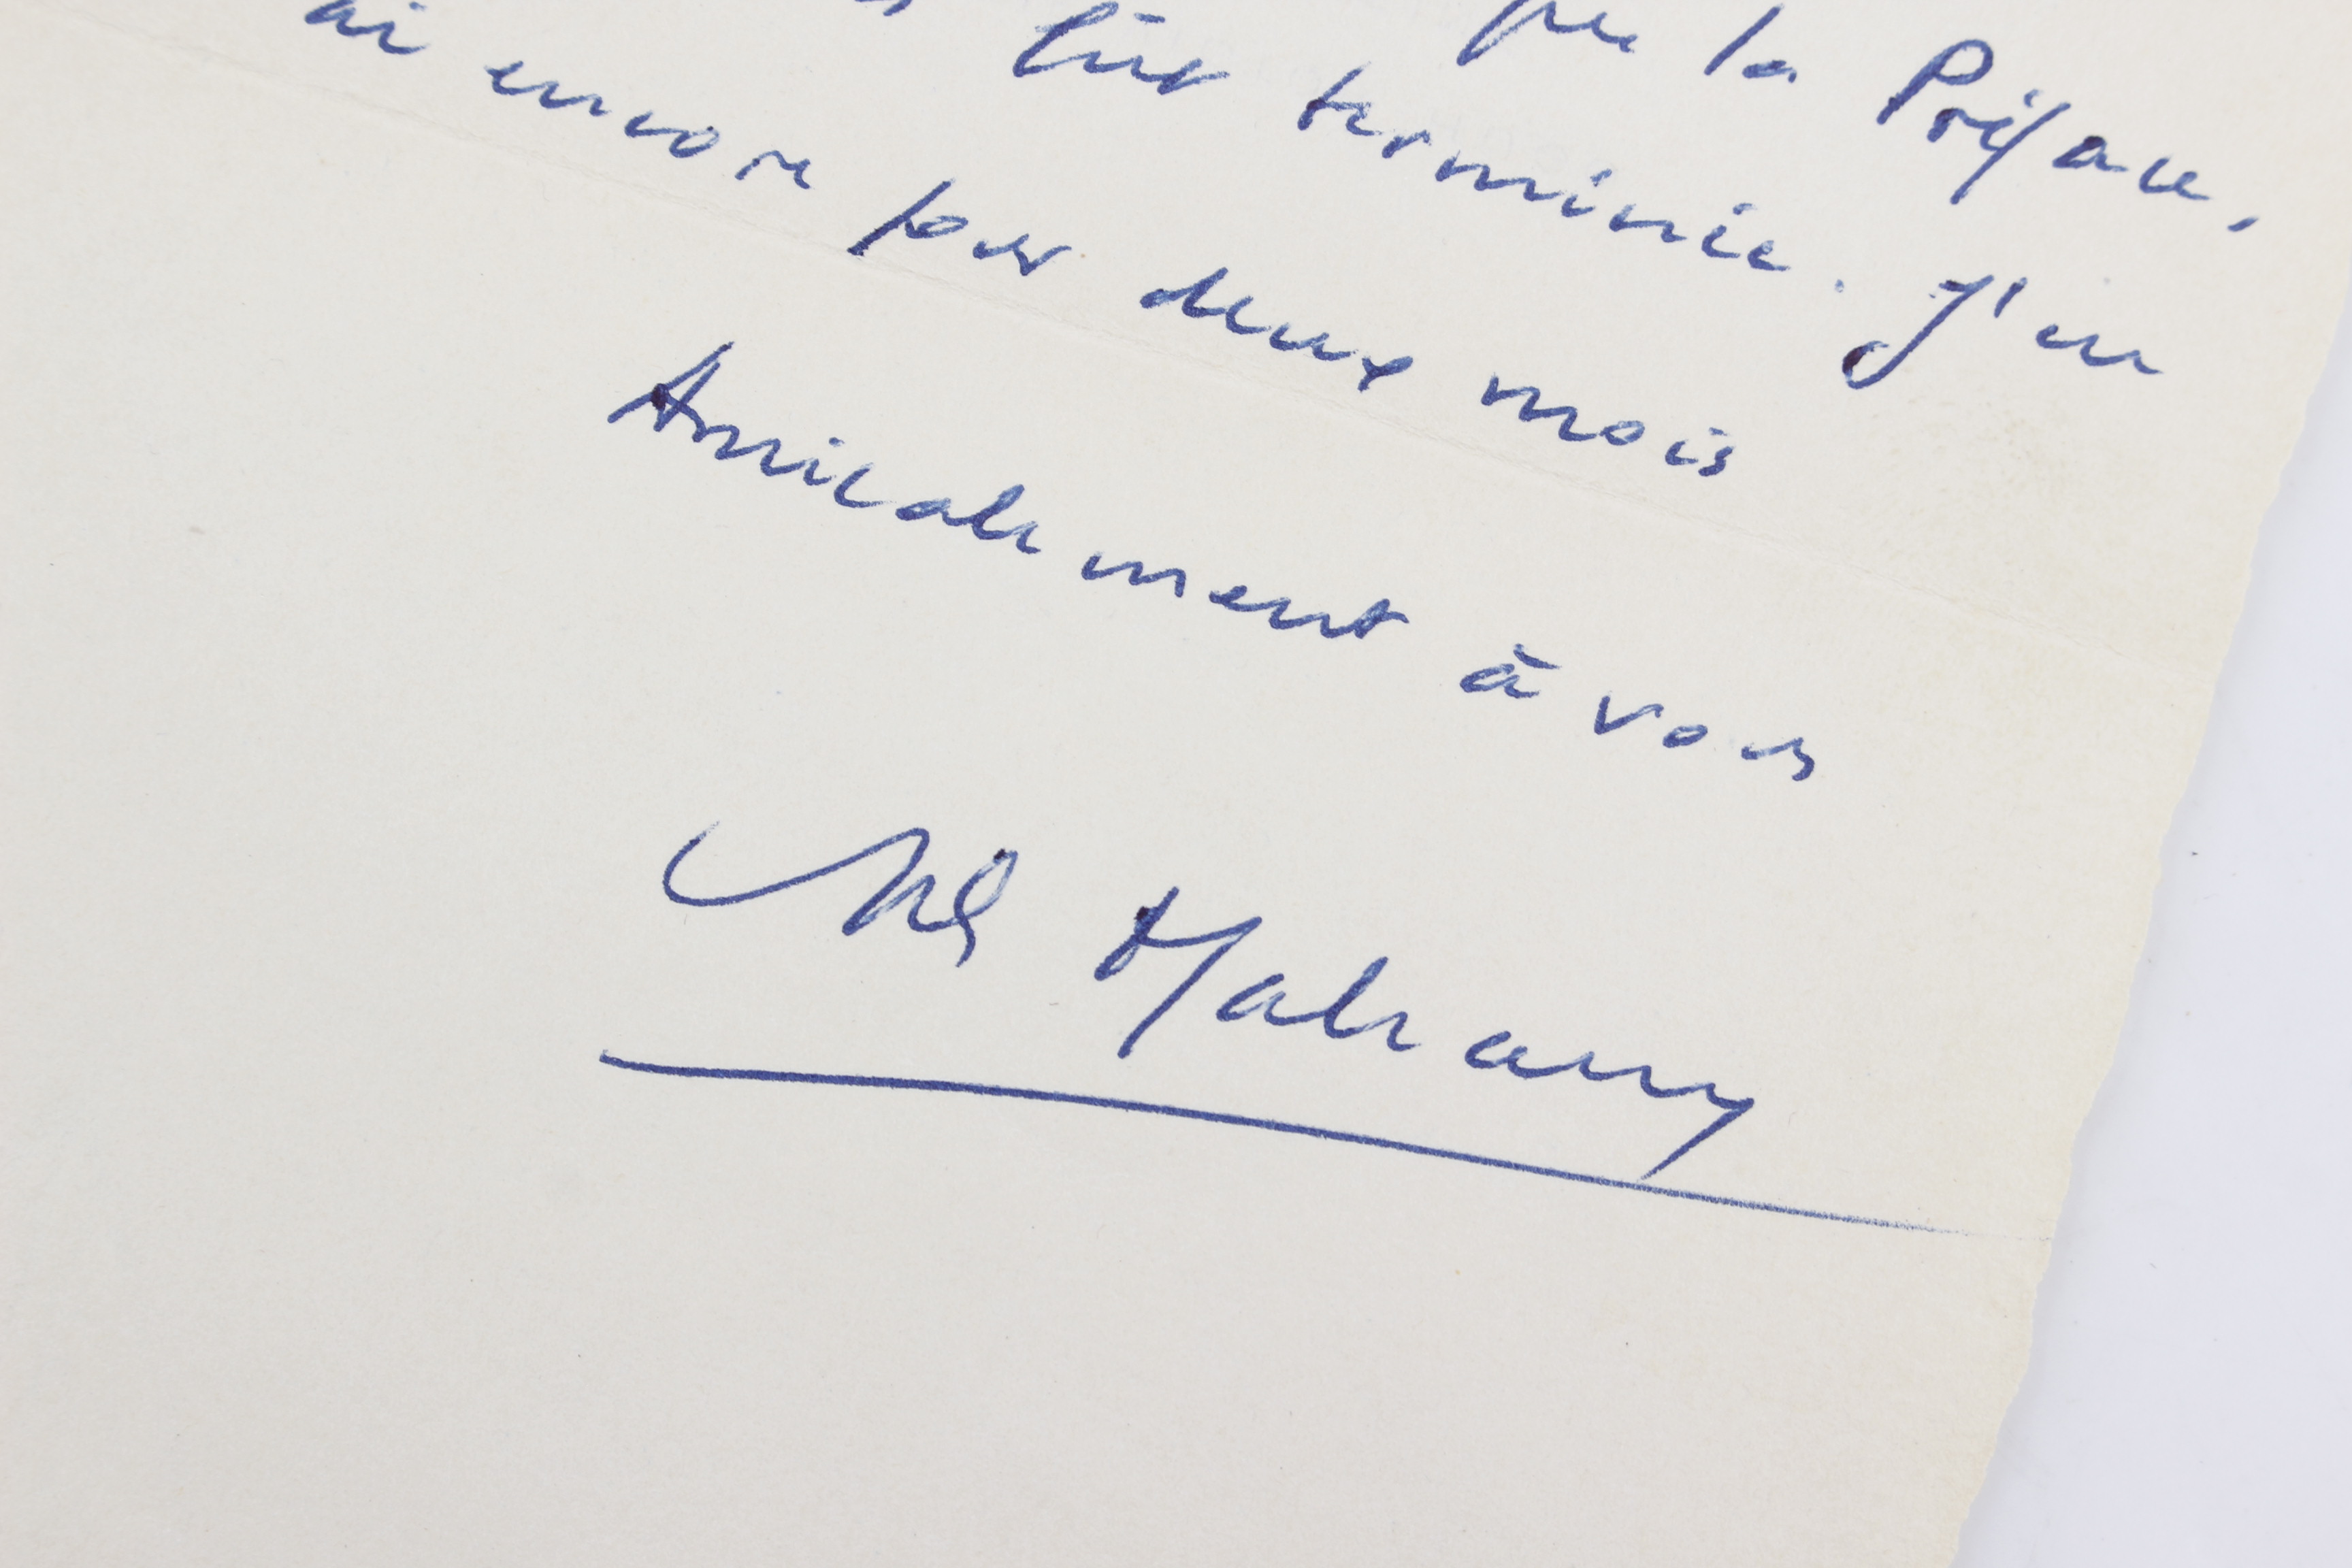 que la Préface,
fût terminée. J'en
ai encore pour deux mois
Amicalement à vous
Malrany